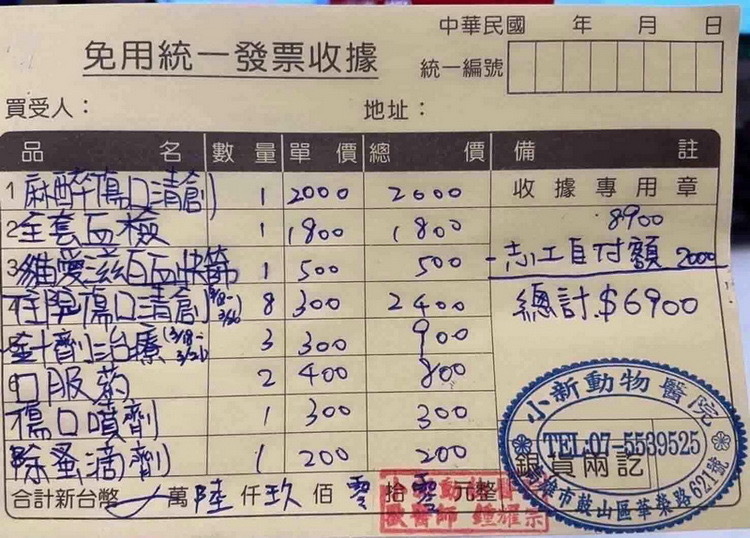 中華民國 年 月 日
免用統一發票收據
統一編號
買受人： 地址：
品名 數量 單價 總價 備註
1 麻醉傷口清創 1 2000 2000
收據專用章
2 全套血檢 1 1800 1800
8900
3 貓愛滋白血快篩 1 500 500
-志工自付額 2000
4 住院傷口清創(3/18-3/26) 8 300 2400
總計$6900
5 針劑治療(3/18-3/21) 3 300 900
6 口服藥 2 400 800
傷口噴劑 1 300 300
除蚤滴劑 1 200 200
合計新台幣 萬 陸 仟 玖 佰 零 拾 零 元整
銀貨兩訖
小新動物醫院
TEL:07-5539525
高雄市鼓山區華榮路621號
獸醫師 鍾耀宗